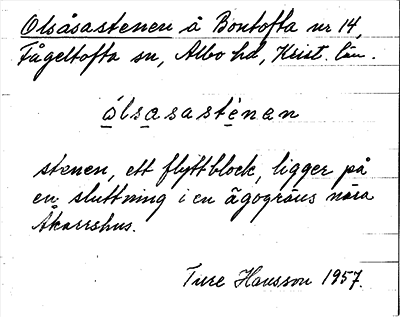 Olsåsastenen å Bontofta nr 14,
Fågeltofta sn, Albo hd, Krist. län.
ólsasasténan
stenen, ett flyttblock, ligger på
en sluttning i en ägogräns nära
Åkarrshus.
Ture Hansson 1957.